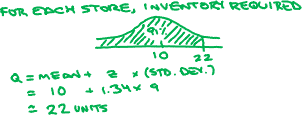 FOR EACH STORE, INVENTORY REQUIRED
91%
10 22
Q = MEAN + Z × (STD. DEV.)
= 10 + 1.34 × 9
= 22 UNITS